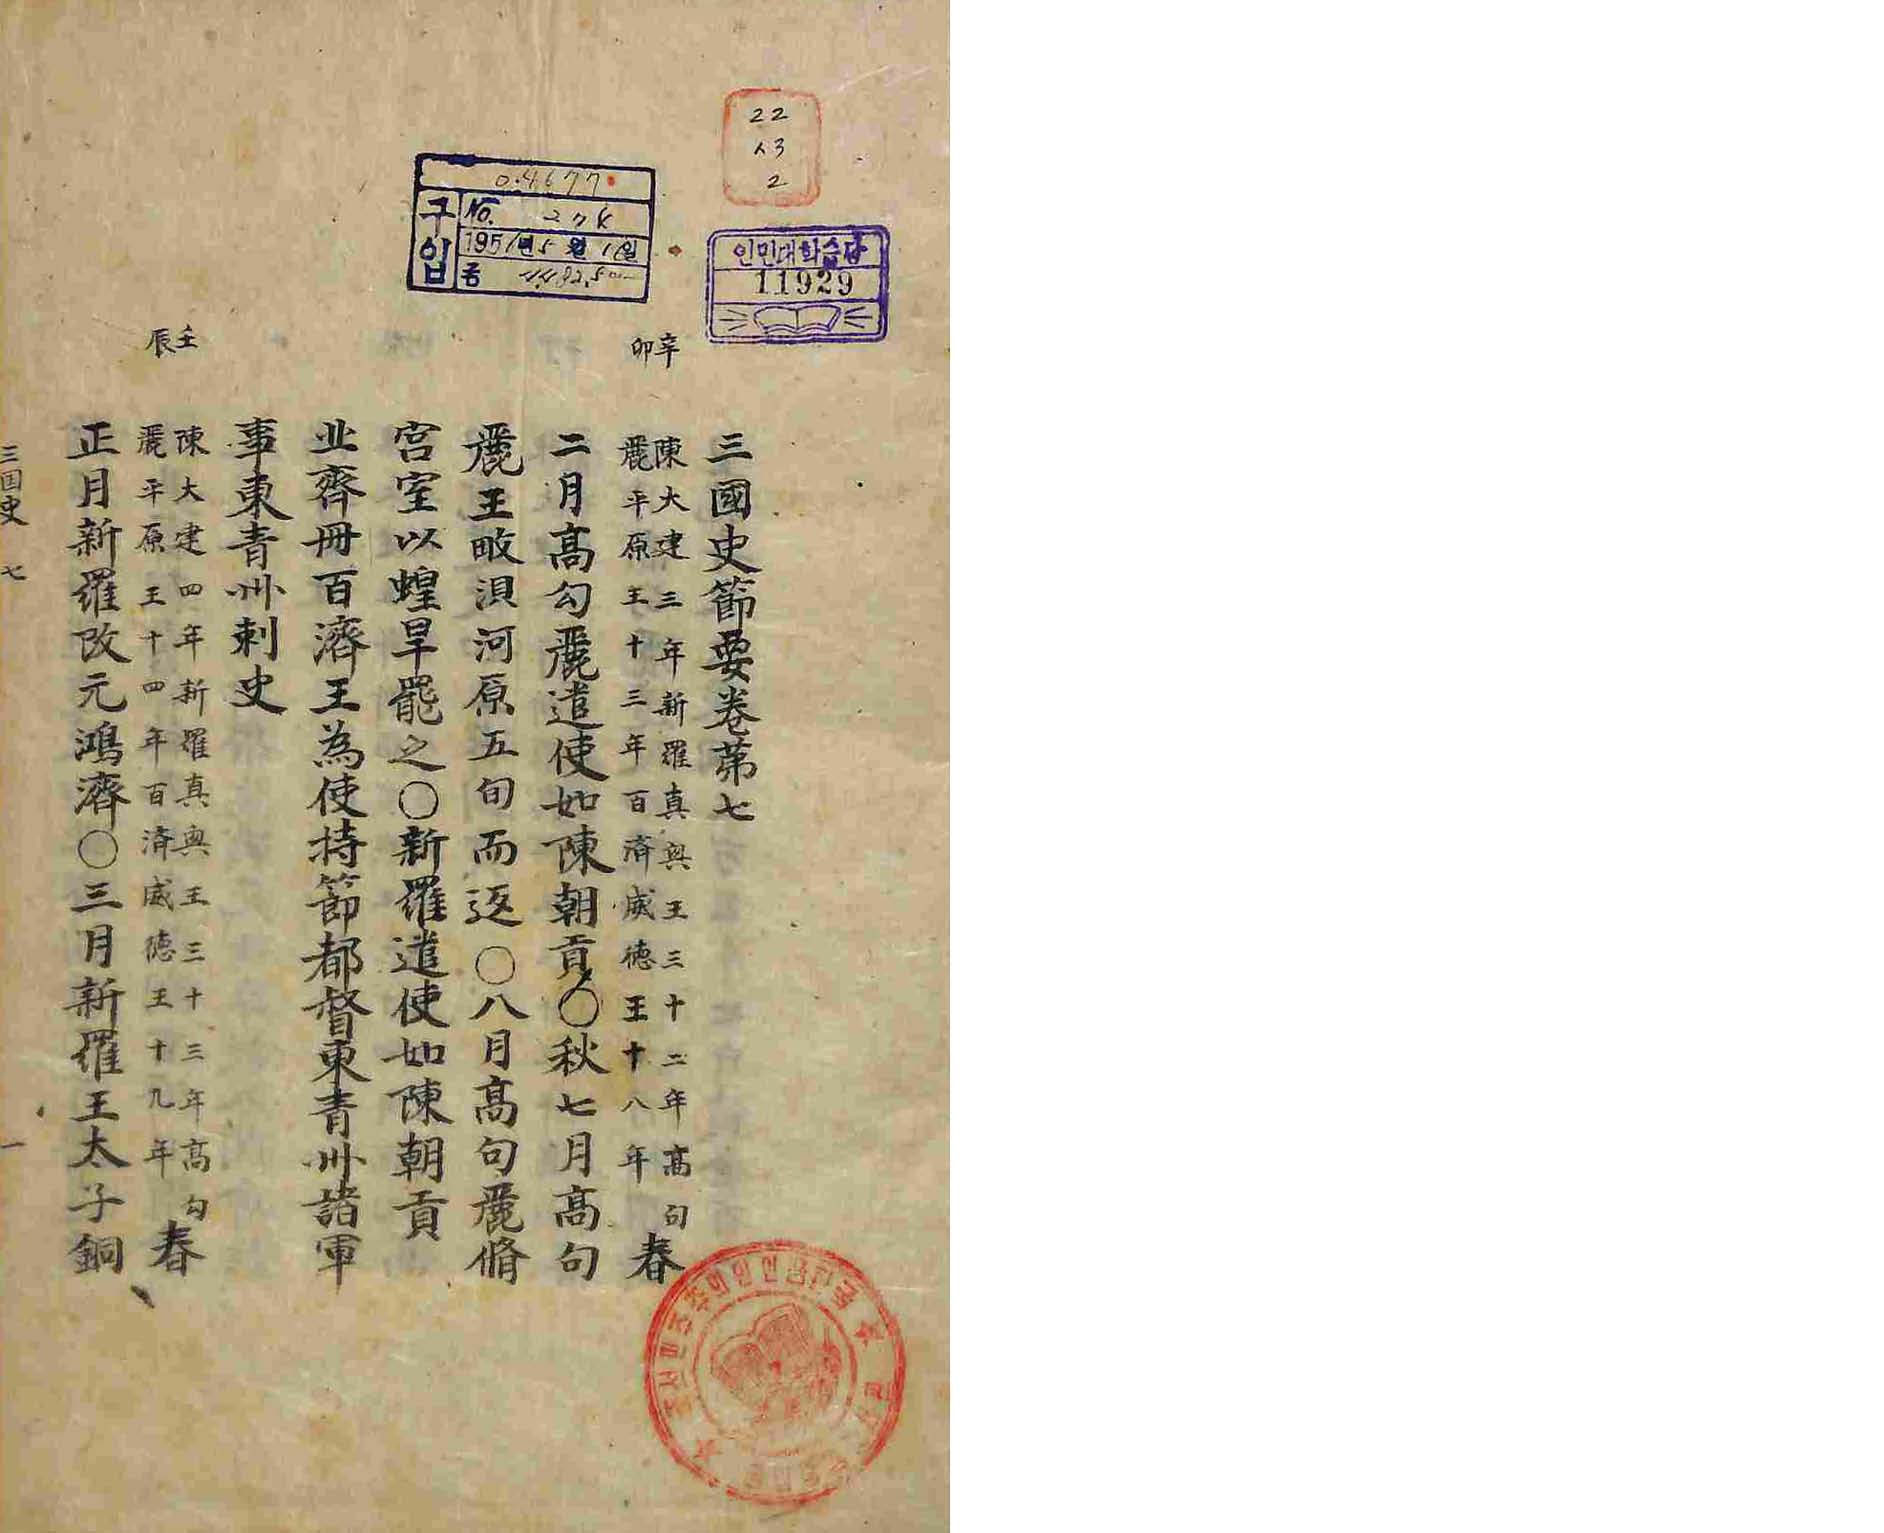 22
ㅅ3
2
인민대학습당
11929
0.4677
구입
No. 274
1951년 5월 1일
辛卯
三國史節要卷第七
陳大建三年新羅真興王三十二年高句
麗平原王十三年百済威德王十八年
春
二月高勾麗遣使如陳朝貢〇秋七月高句
麗王畋浿河原五旬而返〇八月高句麗脩
宮室以蝗旱罷之〇新羅遣使如陳朝貢
北齊冊百濟王為使持節都督東青州諸軍
事東青州刺史
壬辰
陳大建四年新羅真興王三十三年高勾
麗平原王十四年百済威德王十九年
春
正月新羅改元鴻濟〇三月新羅王太子銅
三国史 七
一